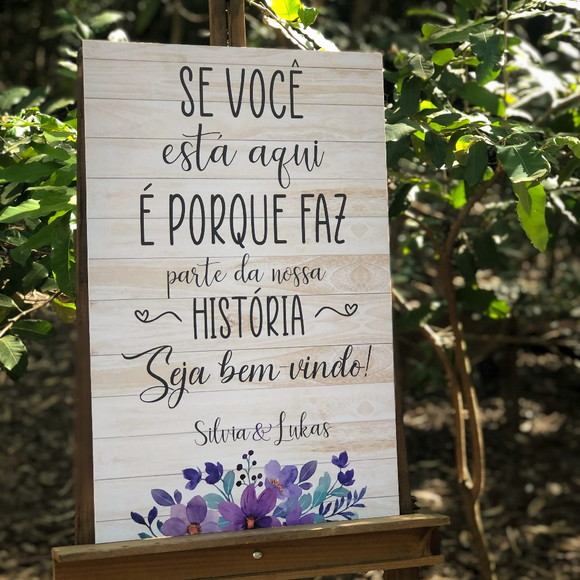 SE VOCÊ
esta aqui
É PORQUE FAZ
parte da nossa
HISTÓRIA
Seja bem vindo!
Silvia & Lukas